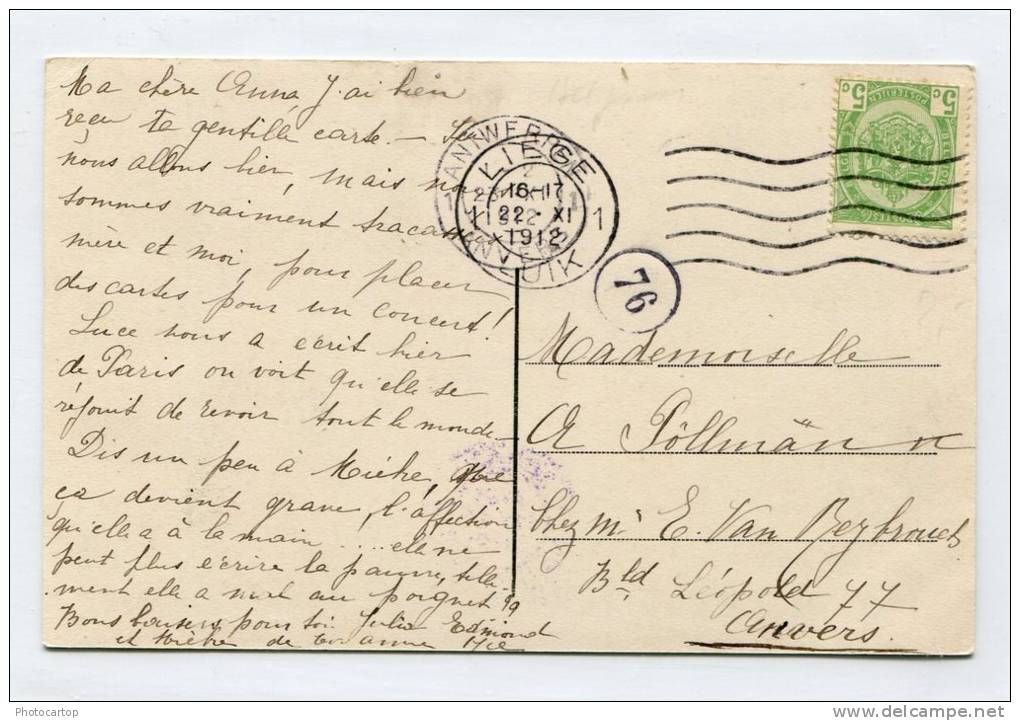 Ma chère Anna, J'ai bien
reçu ta gentille carte —
nous allons bien, mais nous
sommes vraiment tracassées
mère et moi, pour placer
des cartes pour un concert!
Luce nous a écrit hier
de Paris on voit qu'elle se
réjouit de revoir tout le monde
Dis un peu à que
ça devient grave, l'affection
qu'elle a à la main ..... elle ne
peut plus écrire la pauvre, telle-
ment elle a mal au poignet
Bons baisers pour toi Julia Edmond
et de ton amie
ANTWERPEN
ANVERS
LIEGE
16-17
22-XI
1912
1 1
LUIK
76
5c 5c
Mademoiselle
A Pöllmänn
chez Mr E. Van Reybrouck
Bld Léopold 77
Anvers.
Photocartop